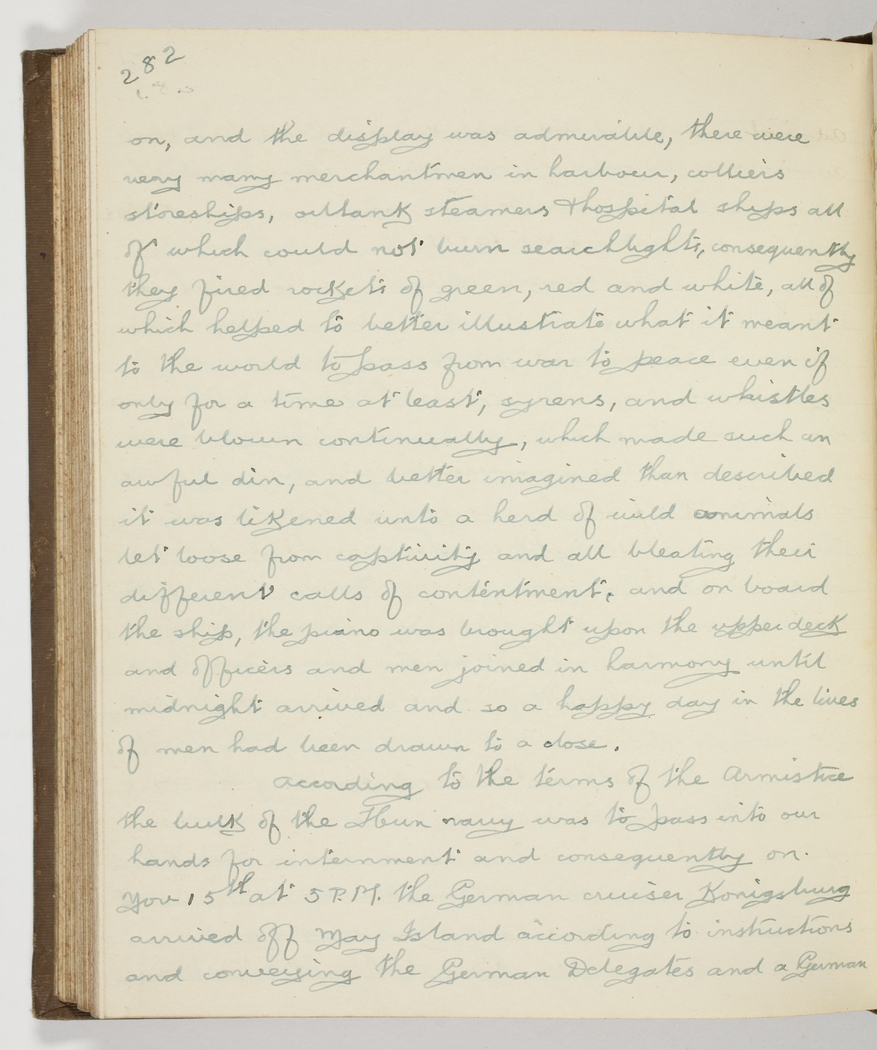 282
on, and the display was admirable, there were
very many merchantmen in harbour, colliers
storeships, oiltank steamers & hospital ships all
of which could not burn searchlights, consequently
they fired rockets of green, red and white, all of
which helped to better illustrate what it meant
to the world to pass from war to peace even if
only for a time at least, syrens, and whistles
were blown continually, which made such an
awful din, and better imagined than described
it was likened unto a herd of wild animals
let loose from captivity and all bleating their
different calls of contentment, and on board
the ship, the piano was brought upon the upper deck
and officers and men joined in harmony until
midnight arrived and so a happy day in the lives
of men had been drawn to a close.
According to the terms of the Armistice
the bulk of the Hun navy was to pass into our
hands for internment and consequently on
Nov 15th at 5 P.M. the German cruiser Konigsburg
arrived off May Island according to instructions
and conveying the German Delegates and a German